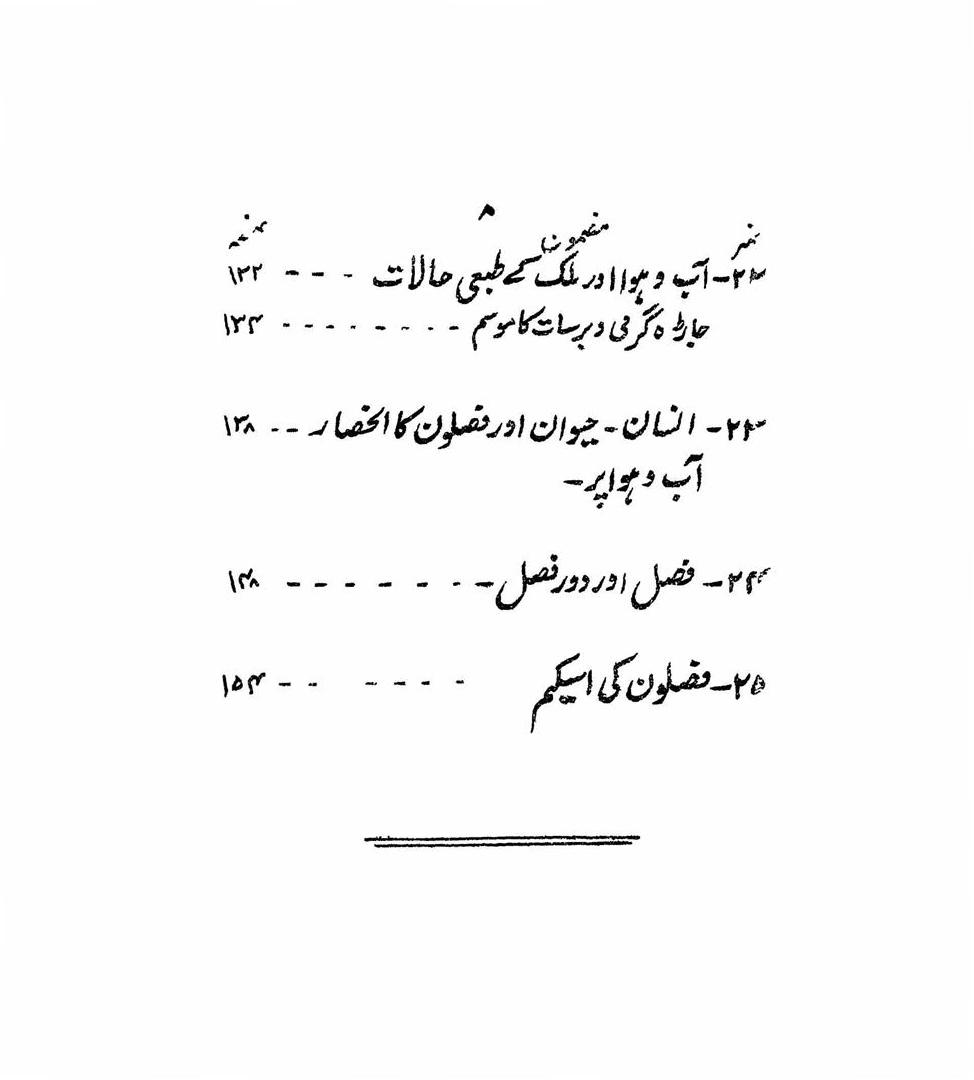 ۸
نمبر مضمون صفحہ
۲۲- آب و ہوا اور ملک کے طبعی حالات - - - ۱۲۲
جاڑہ گرمی و برسات کا موسم - - - - - - - - ۱۳۴
۲۳- انسان - حیوان اور فصلون کا انحصار - - ۱۳۸
آب و ہوا پر -
۲۴- فصل اور دور فصل - - - - - - - ۱۴۸
۲۵- فصلون کی اسیکم - - - - - - ۱۵۴